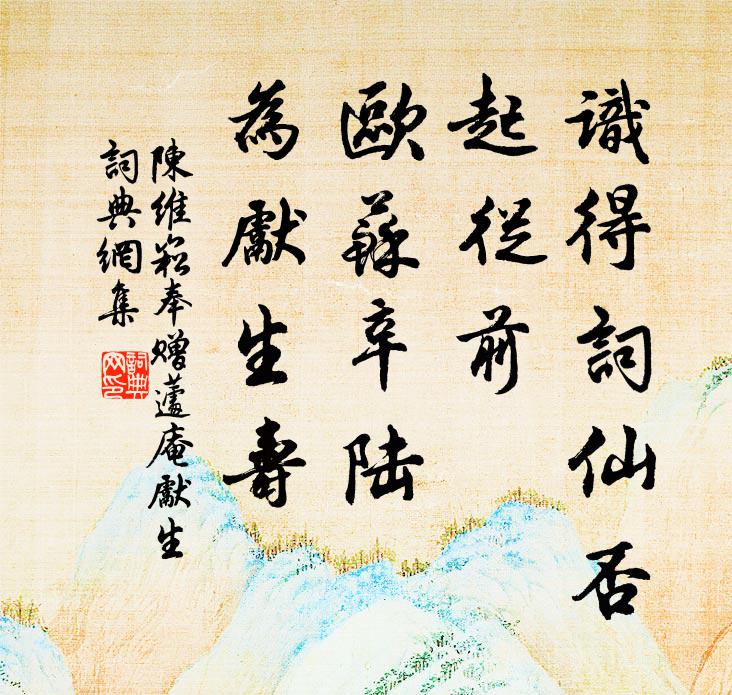 識得詞仙否
起從前
歐蘇辛陸
為獻生壽
陳維崧奉贈蘧庵獻生
詞典網集
詞典網印